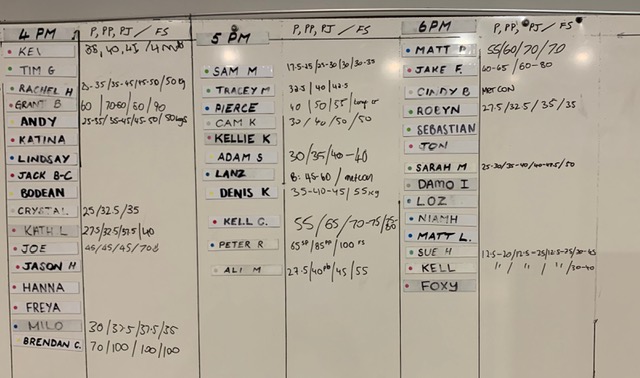 4 PM P, PP, PJ / FS
KEI 38, 40, 41 /
TIM G
RACHEL H 25-35/35-45/45-50/50kg
GRANT B 60 / 70-60 / 60 / 90
ANDY 25-35/35-45/45-50/50kgs
KATINA
LINDSAY
JACK B-C
BODEAN
CRYSTAL 25/32.5/35
KATH L 27.5/32.5/37.5/40
JOE 45/45/45/70
JASON H
HANNA
FREYA
MILO 30/37.5/37.5/35
BRENDAN C. 70/100/100/100
5 PM P, PP, PJ / FS
SAM M 17.5-25/25-30/30/30-35
TRACEY M 32.5 / 40 / 42.5
PIERCE 40 / 50 / 55 /
CAM K 30/40/50/50
KELLIE K
ADAM S 30/35/40-40
LANZ B: 45-60 / metcon
DENIS K 35-40-45/55kg
KELL C. 55/65/70-75/
PETER R 65 PP/85 PP/100 FS
ALI M 27.5/40/45/55
6 PM P, PP, PJ / FS
MATT 55/60/70/70
JAKE F. 60-65 / 60-80
CINDY B METCON
ROBYN 27.5/32.5 / 35/35
SEBASTIAN
JON
SARAH M 25-30/35-40/40-47.5/50
DAMO I
LOZ
NIAMH
MATT L.
SUE H 12.5-20/12.5-25/12.5-25/30-45
KELL " / " / " / 30-40
FOXY